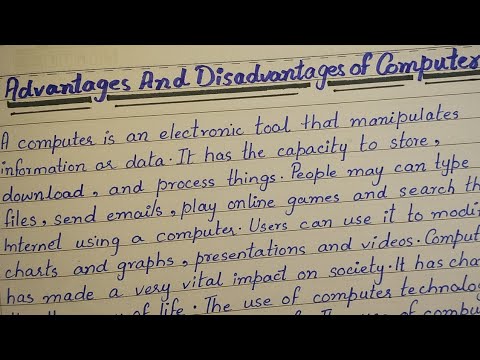 Advantages And Disadvantages of Computer
A computer is an electronic tool that manipulates
information or data. It has the capacity to store,
download, and process things. People may can type
files, send emails, play online games and search th
Internet using a computer. Users can use it to modi
charts and graphs, presentations and videos. Comput
has made a very vital impact on society. It has cha
of life. The use of computer technolog